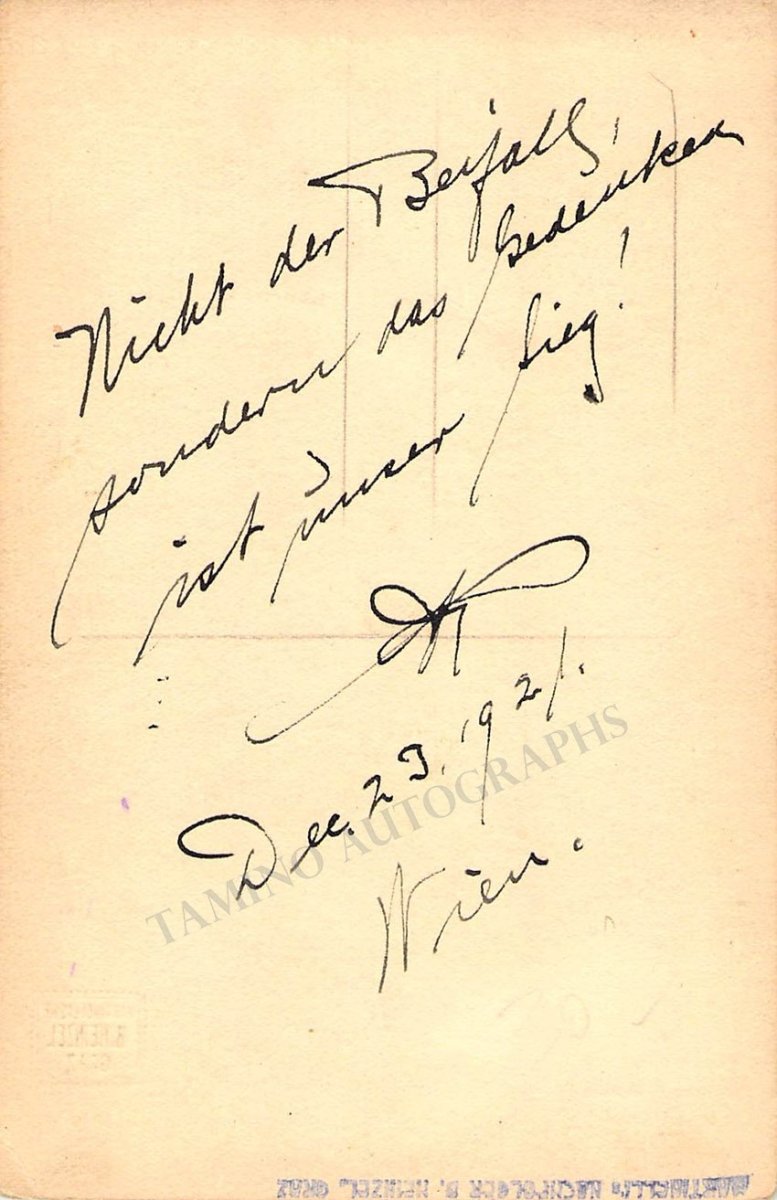 Nicht der Beifall,
sondern das Gedenken
ist unser Sieg!
Dec. 23. 1921.
Wien.
TAMINO AUTOGRAPHS